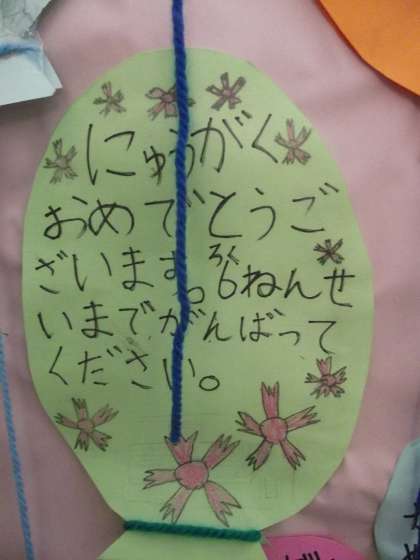 にゅうがく
おめでとうご
ざいますっ6ろくねんせ
いまでがんばって
ください。